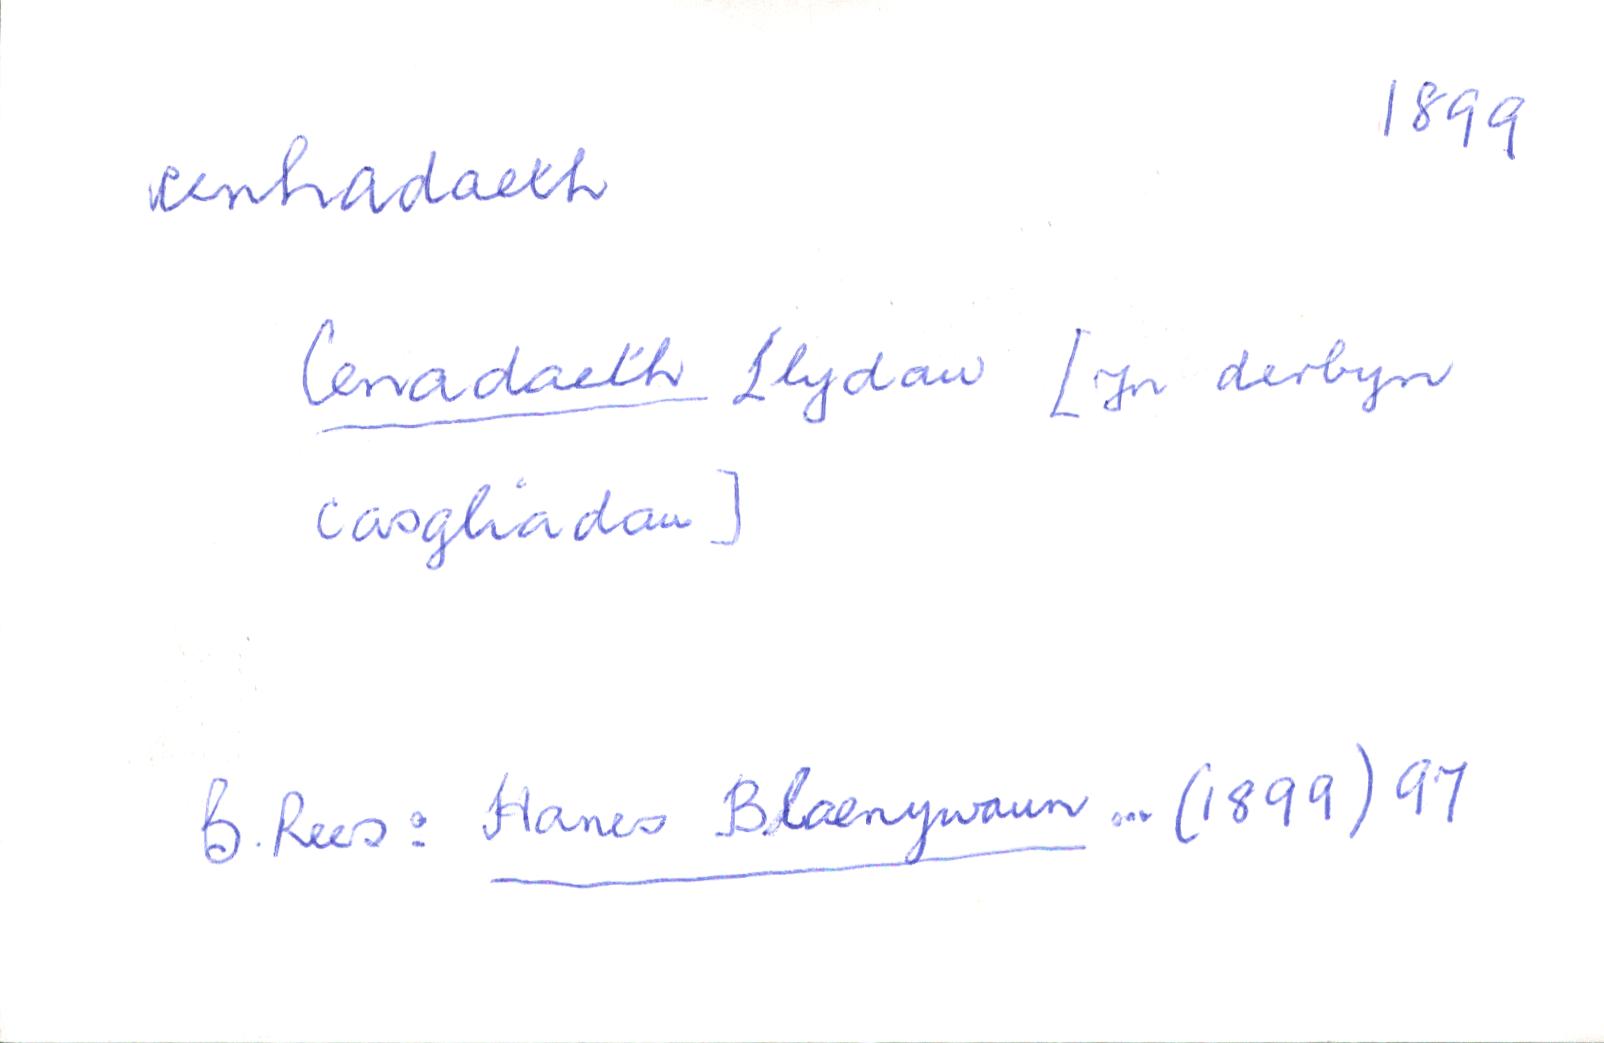 1899
cenhadaeth
Cenadaeth Llydaw [yn derbyn
casgliadau]
B. Rees: Hanes Blaenywaun ... (1899) 97